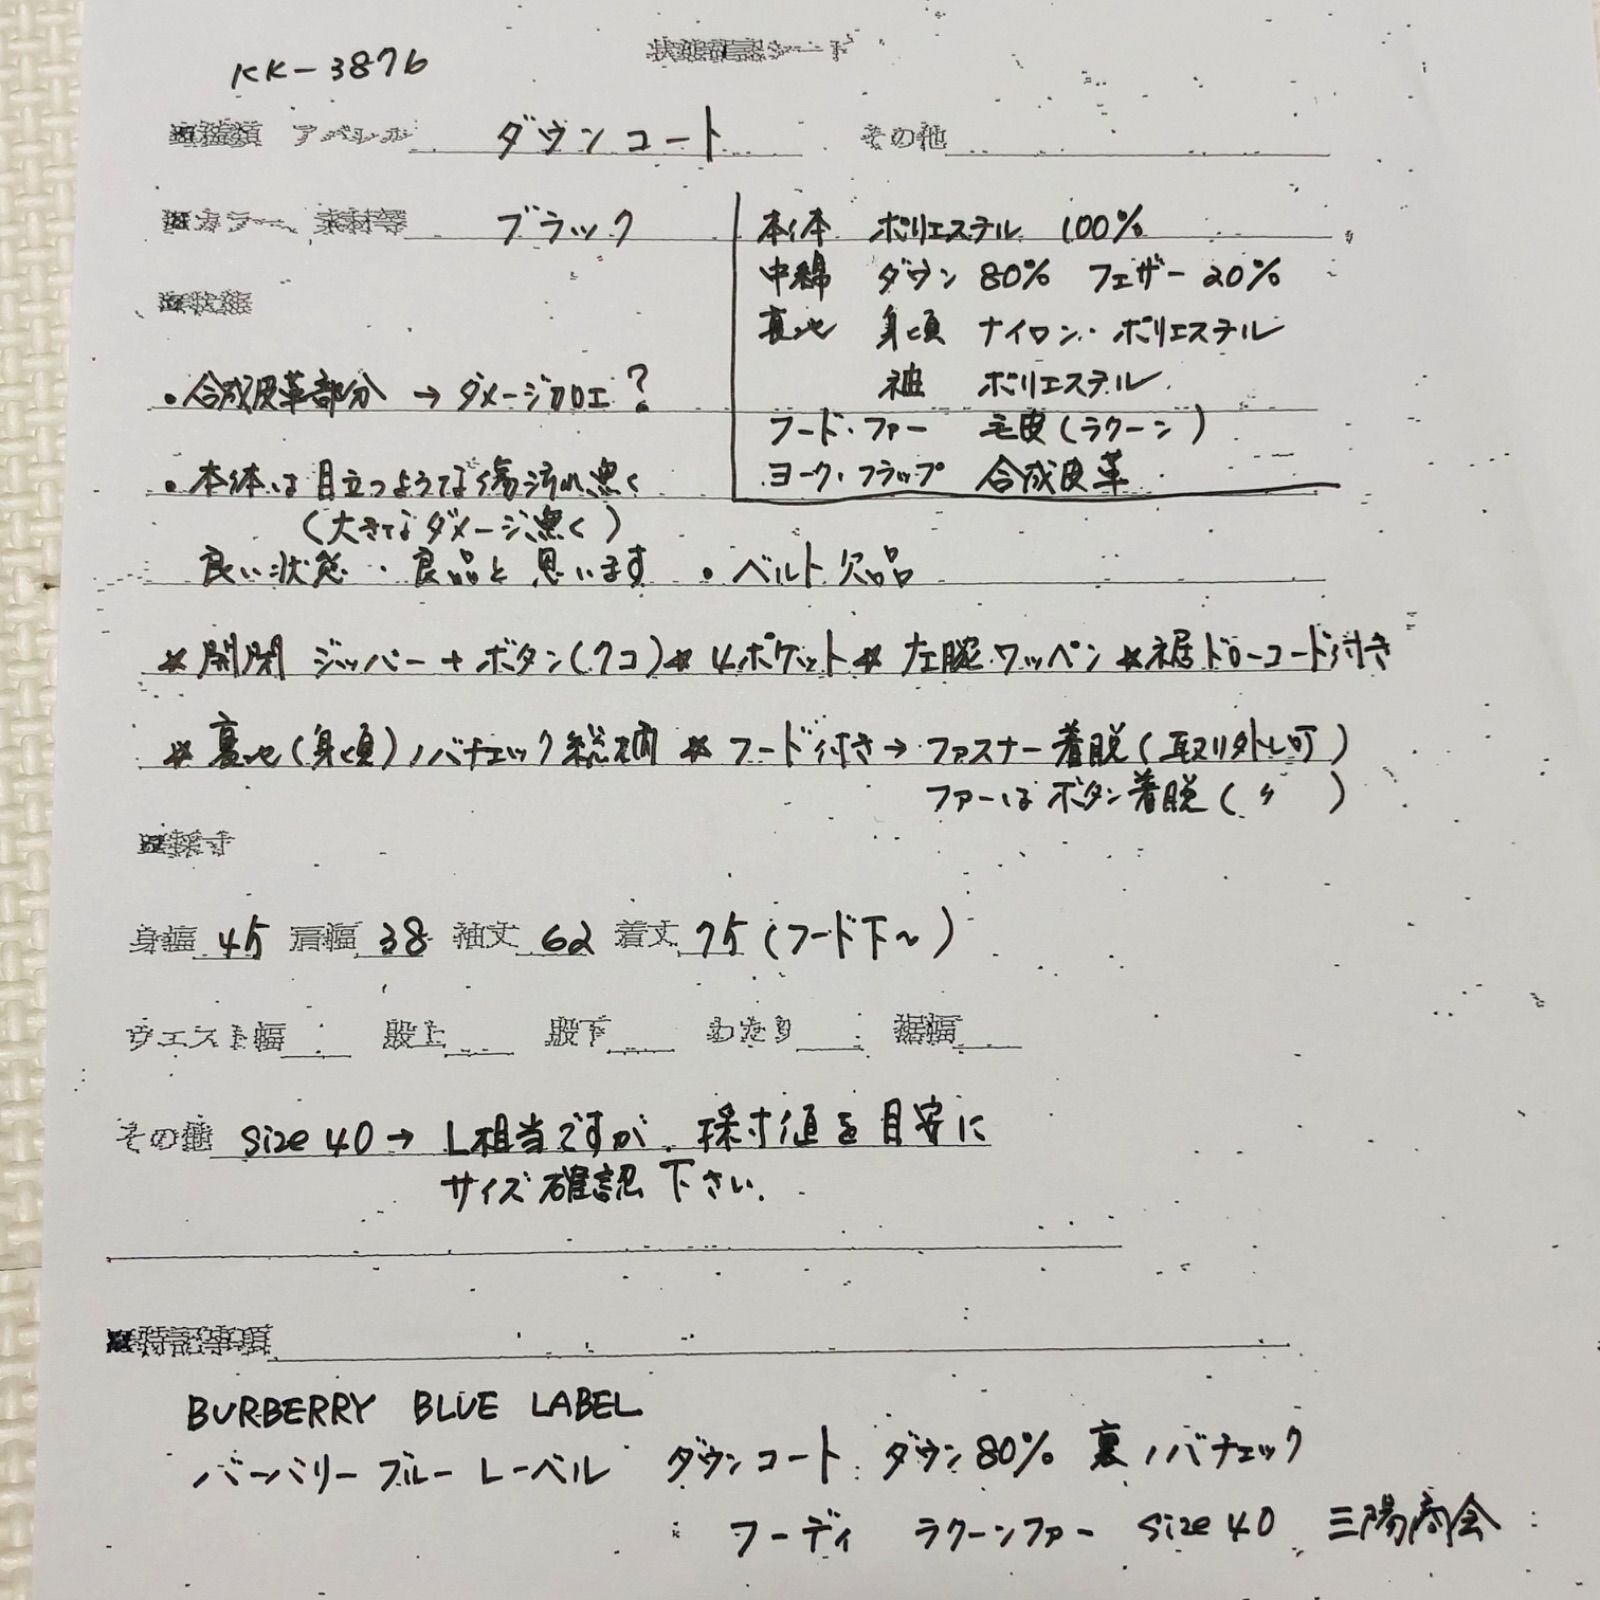 KK-3876
状態確認シート
■種類 アパレル ダウンコート その他
■カラー、素材等 ブラック
本体 ポリエステル 100%
中綿 ダウン 80% フェザー 20%
裏地 身頃 ナイロン・ポリエステル
袖 ポリエステル
フード・ファー 毛皮(ラクーン)
ヨーク・フラップ 合成皮革
■状態
・合成皮革部分 → ダメージ加工?
・本体は目立つような傷汚れ無く
(大きなダメージ無く)
良い状態・良品と思います ・ベルト欠品
*開閉 ジッパー+ボタン(7コ)*4ポケット*左腕ワッペン*裾ドローコード付き
*裏地(身頃)ノバチェック総柄 *フード付き→ファスナー着脱(取り外し可)
ファーはボタン着脱(〃)
■採寸
身幅 45 肩幅 38 袖丈 62 着丈 75(フード下~)
ウエスト幅 股上 股下 わたり 裾幅
その他 size 40→ L相当ですが、採寸値を目安に
サイズ確認下さい.
■特記事項
BURBERRY BLUE LABEL
バーバリーブルーレーベル ダウンコート ダウン80% 裏ノバチェック
フーディ ラクーンファー size 40 三陽商会